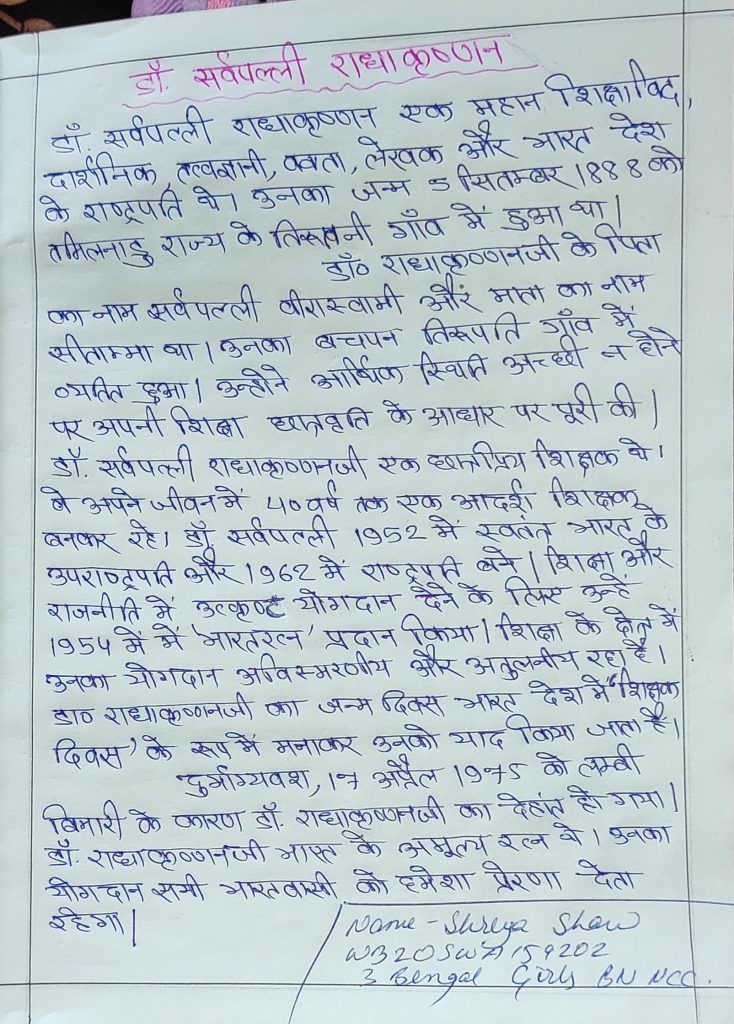 डॉ. सर्वपल्ली राधाकृष्णन
डॉ. सर्वपल्ली राधाकृष्णन एक महान शिक्षाविद,
दार्शनिक, तत्वज्ञानी, वक्ता, लेखक और भारत देश
के राष्ट्रपति थे। उनका जन्म 5 सितम्बर 1888 को
तमिलनाडु राज्य के तिरूतनी गाँव में हुआ था।
डॉ० राधाकृष्णनजी के पिता
का नाम सर्वपल्ली वीरास्वामी और माता का नाम
सीताम्मा था। उनका बचपन तिरूपति गाँव में
व्यतित हुआ। उन्होंने आर्थिक स्थिति अच्छी न होने
पर अपनी शिक्षा छात्रवृति के आधार पर पूरी की।
डॉ. सर्वपल्ली राधाकृष्णनजी एक छात्रप्रिय शिक्षक थे।
वे अपने जीवन में 40 वर्ष तक एक आदर्श शिक्षक
बनकर रहे। डॉ. सर्वपल्ली 1952 में स्वतंत्र भारत के
उपराष्ट्रपति और 1962 में राष्ट्रपति बने। शिक्षा और
राजनीति में उत्कृष्ट योगदान देने के लिए उन्हें
1954 में में 'भारतरत्न' प्रदान किया। शिक्षा के क्षेत्र में
उनका योगदान अविस्मरणीय और अतुलनीय रहा है।
डा० राधाकृष्णनजी का जन्म दिवस भारत देश में "शिक्षक
दिवस' के रूप में मनाकर उनको याद किया जाता है।
दुर्भाग्यवश, 17 अप्रैल 1975 को लम्बी
बिमारी के कारण डॉ. राधाकृष्णनजी का देहांत हो गया।
डॉ. राधाकृष्णनजी भारत के अमूल्य रत्न थे। उनका
योगदान सभी भारतवासी को हमेशा प्रेरणा देता
रहेगा।
Name - Shreya Shaw
WB20SWA159202
3 Bengal Girls BN NCC.